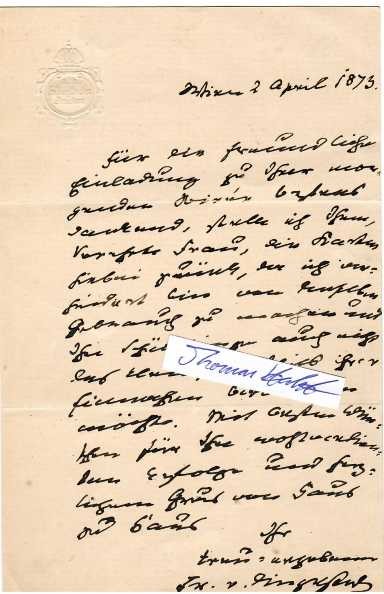 Wien 2 April 1873.
Für die freundliche
Einladung zu Ihrer mor-
genden Soirée bestens
dankend, stelle ich Ihnen,
Verehrte Frau, die Karten
hiebei zurück, da ich ver-
hindert bin von denselben
Gebrauch zu machen und
Ihre auch nicht
das Ihrer
möchte. Mit besten Wün-
schen für Ihre wohlverdien-
ten Erfolge und herz-
lichem Gruß von Haus
zu Haus
Ihr
treu-ergebener
Fr. v. Dingelstedt